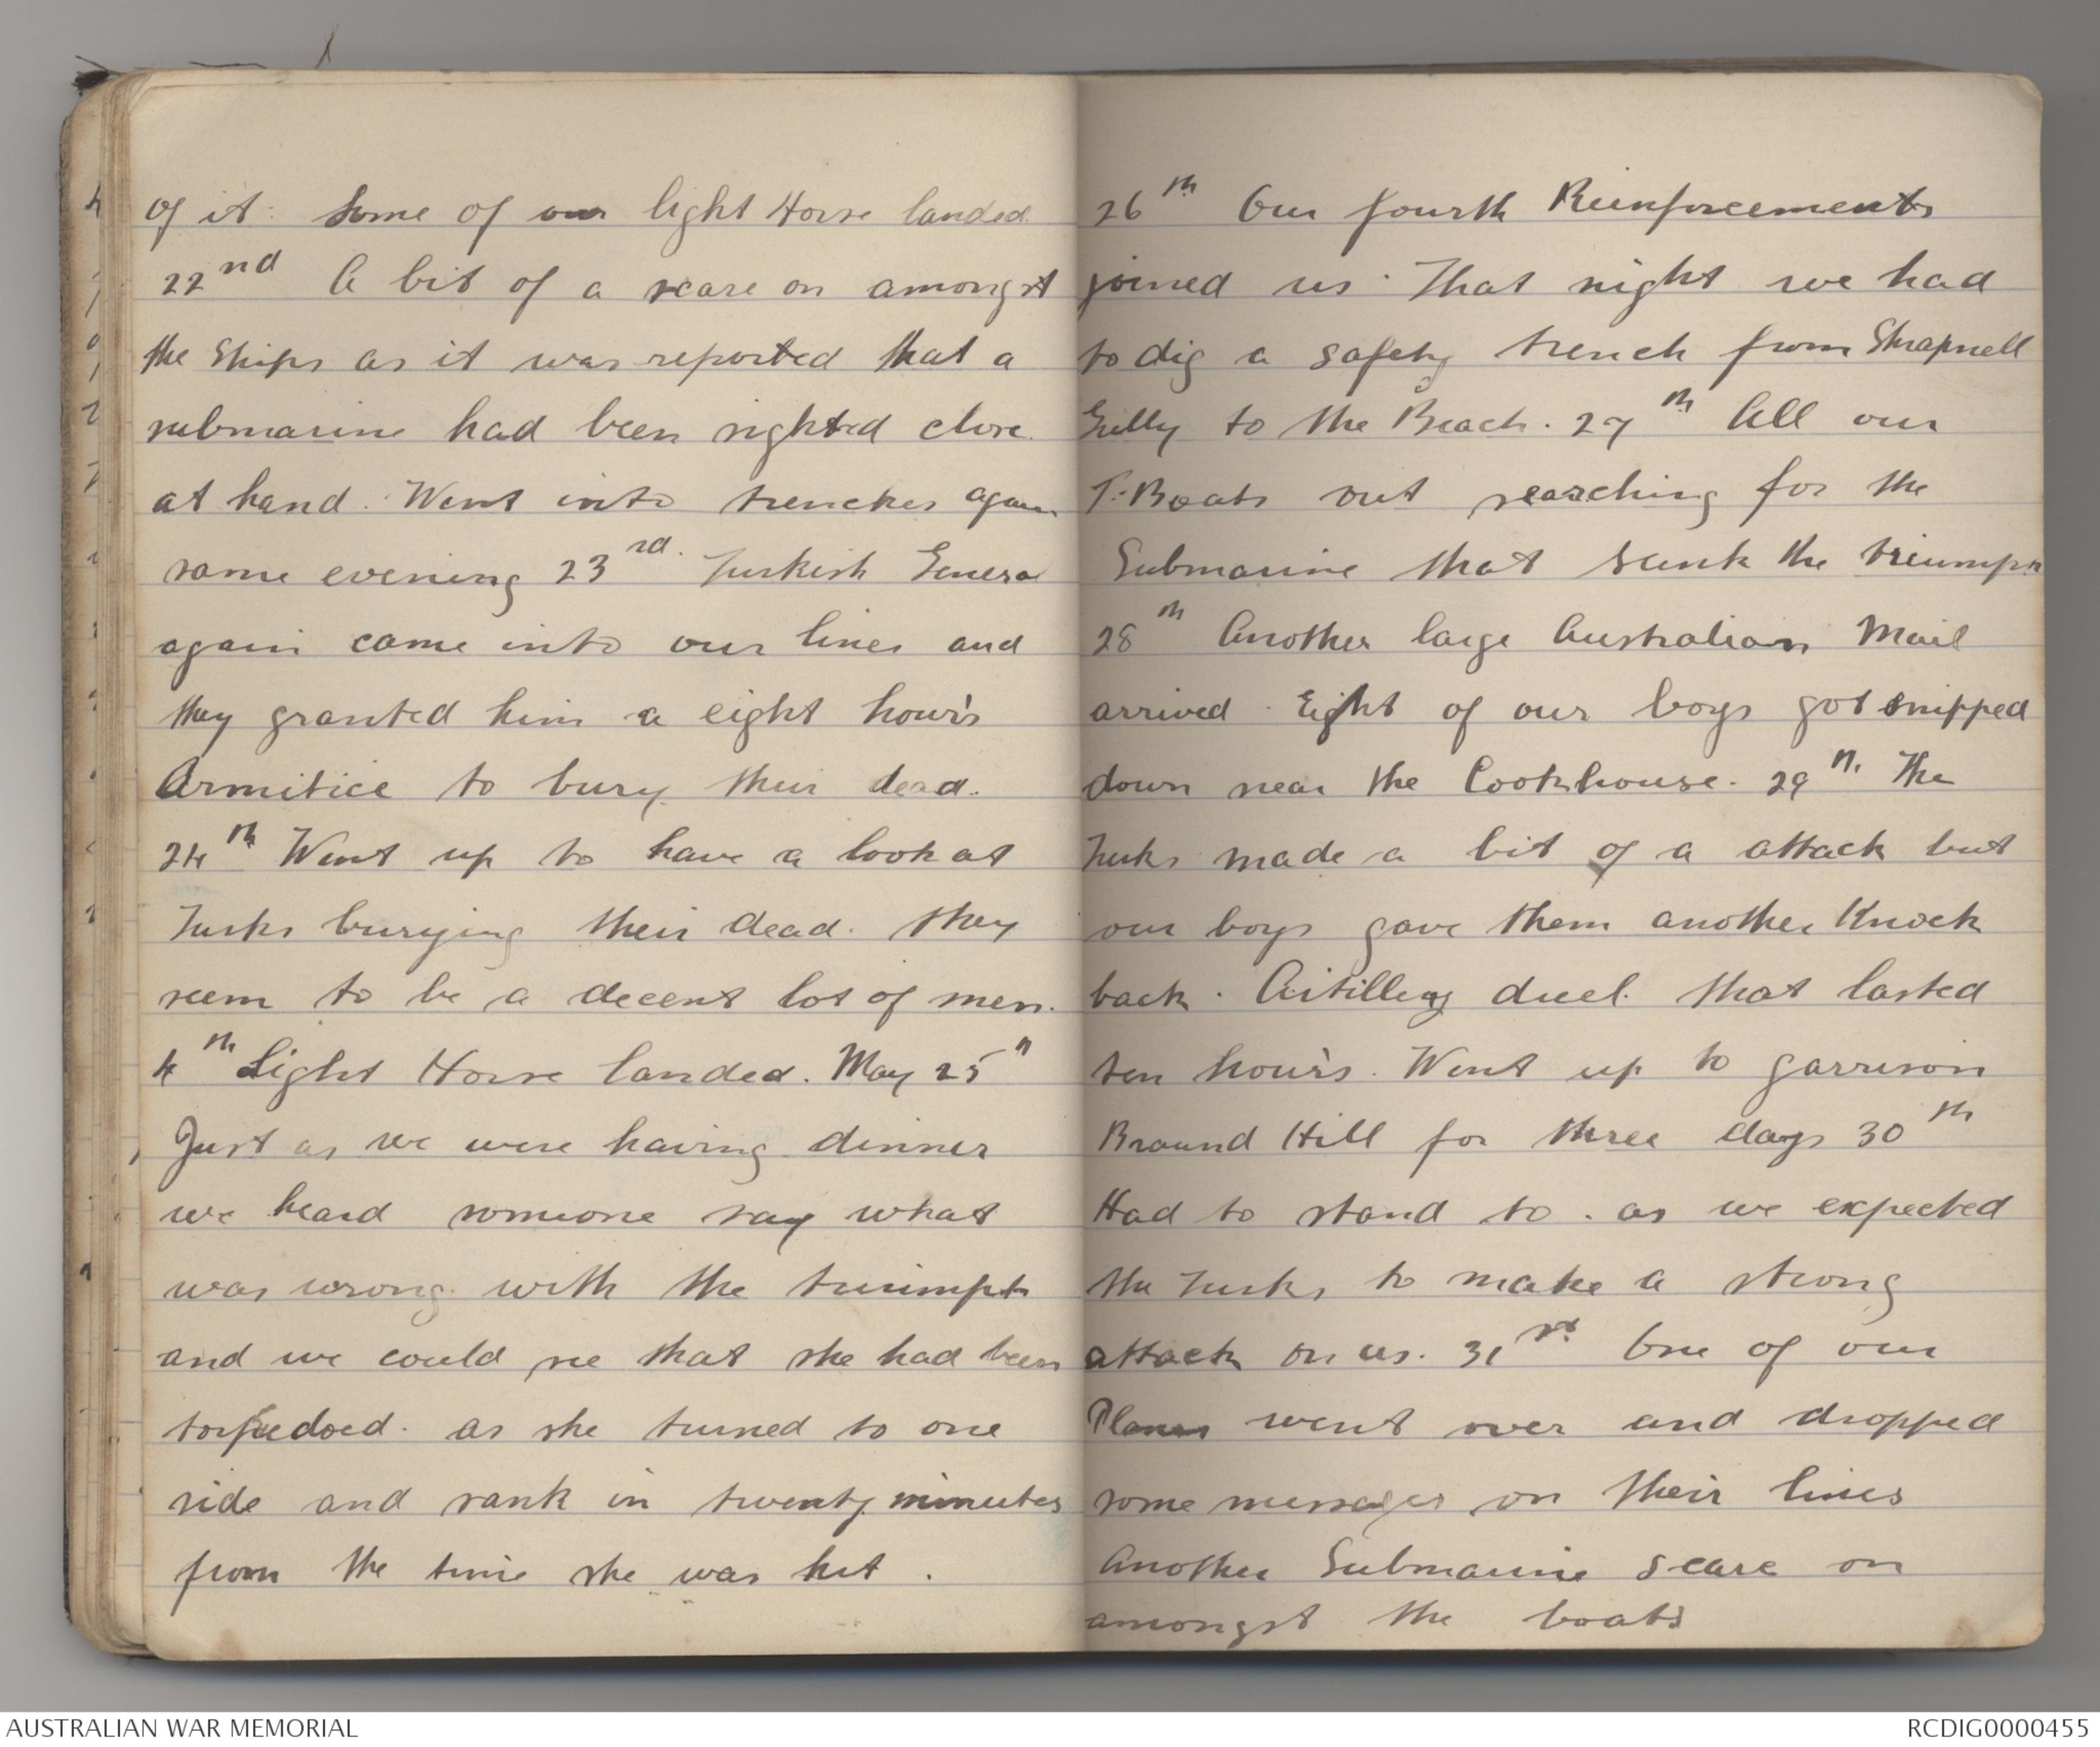 of it. Some of our light Horse landed.
22nd A bit of a scare on amongst
the Ships as it was reported that a
submarine had been sighted close
at hand. Went into trenches again
same evening 23rd. Turkish General
again came into our lines and
they granted him a eight hour's
Armitice to bury their dead.
24th Went up to have a look at
Turks burying their dead. they
seem to be a decent lot of men.
4th Light Horse landed. May 25th
Just as we were having dinner
we heard someone say what
was wrong with the triumph
and we could see that she had been
torpedoed. as she turned to one
side and sank in twenty minutes
from the time she was hit.
26th Our fourth Reinforcements
joined us. That night we had
to dig a safety trench from Shrapnell
Gully to the Beach. 27th All our
T. Boats out searching for the
Submarine that sunk the triumph
28th Another large Australian Mail
arrived. Eight of our boys got snipped
down near the Cookhouse. 29th. The
Turks made a bit of a attack but
our boys gave them another Knock
back. Artillery duel. that lasted
ten hour's. Went up to garrison
Braund Hill for three days 30th
Had to stand to. as we expected
the Turks to make a strong
attack on us. 31st One of our
Planes went over and dropped
some messages on their lines
Another Submarine scare on
amongst the boats
AUSTRALIAN WAR MEMORIAL
RCDIG0000455